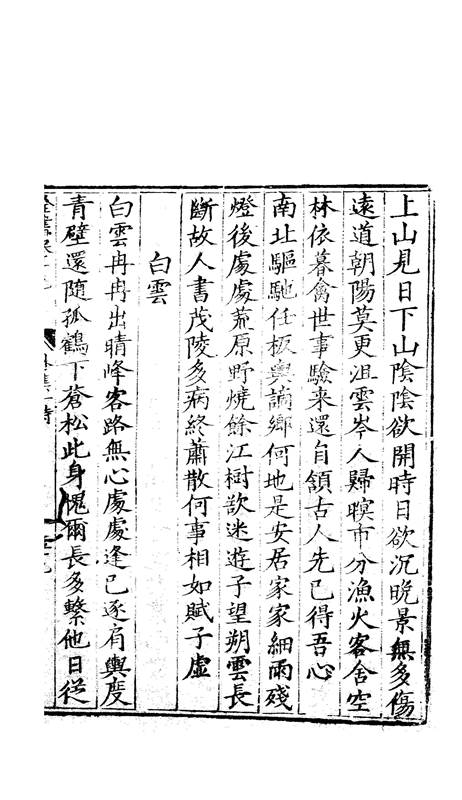 上山見日下山陰陰欲開時日欲沉晚景無多傷
遠道朝陽莫更沮雲岑人歸暝市分漁火客舍空
林依暮禽世事驗來還自頷古人先已得吾心
南北驅馳任板輿謫鄉何地是安居家家細雨殘
燈後處處荒原野燒餘江樹欲迷遊子望朔雲長
斷故人書茂陵多病終蕭散何事相如賦子虛
白雲
白雲冉冉出晴峰客路無心處處逢已逐肩輿度
青壁還隨孤鶴下蒼松此身愧爾長多繫他日從